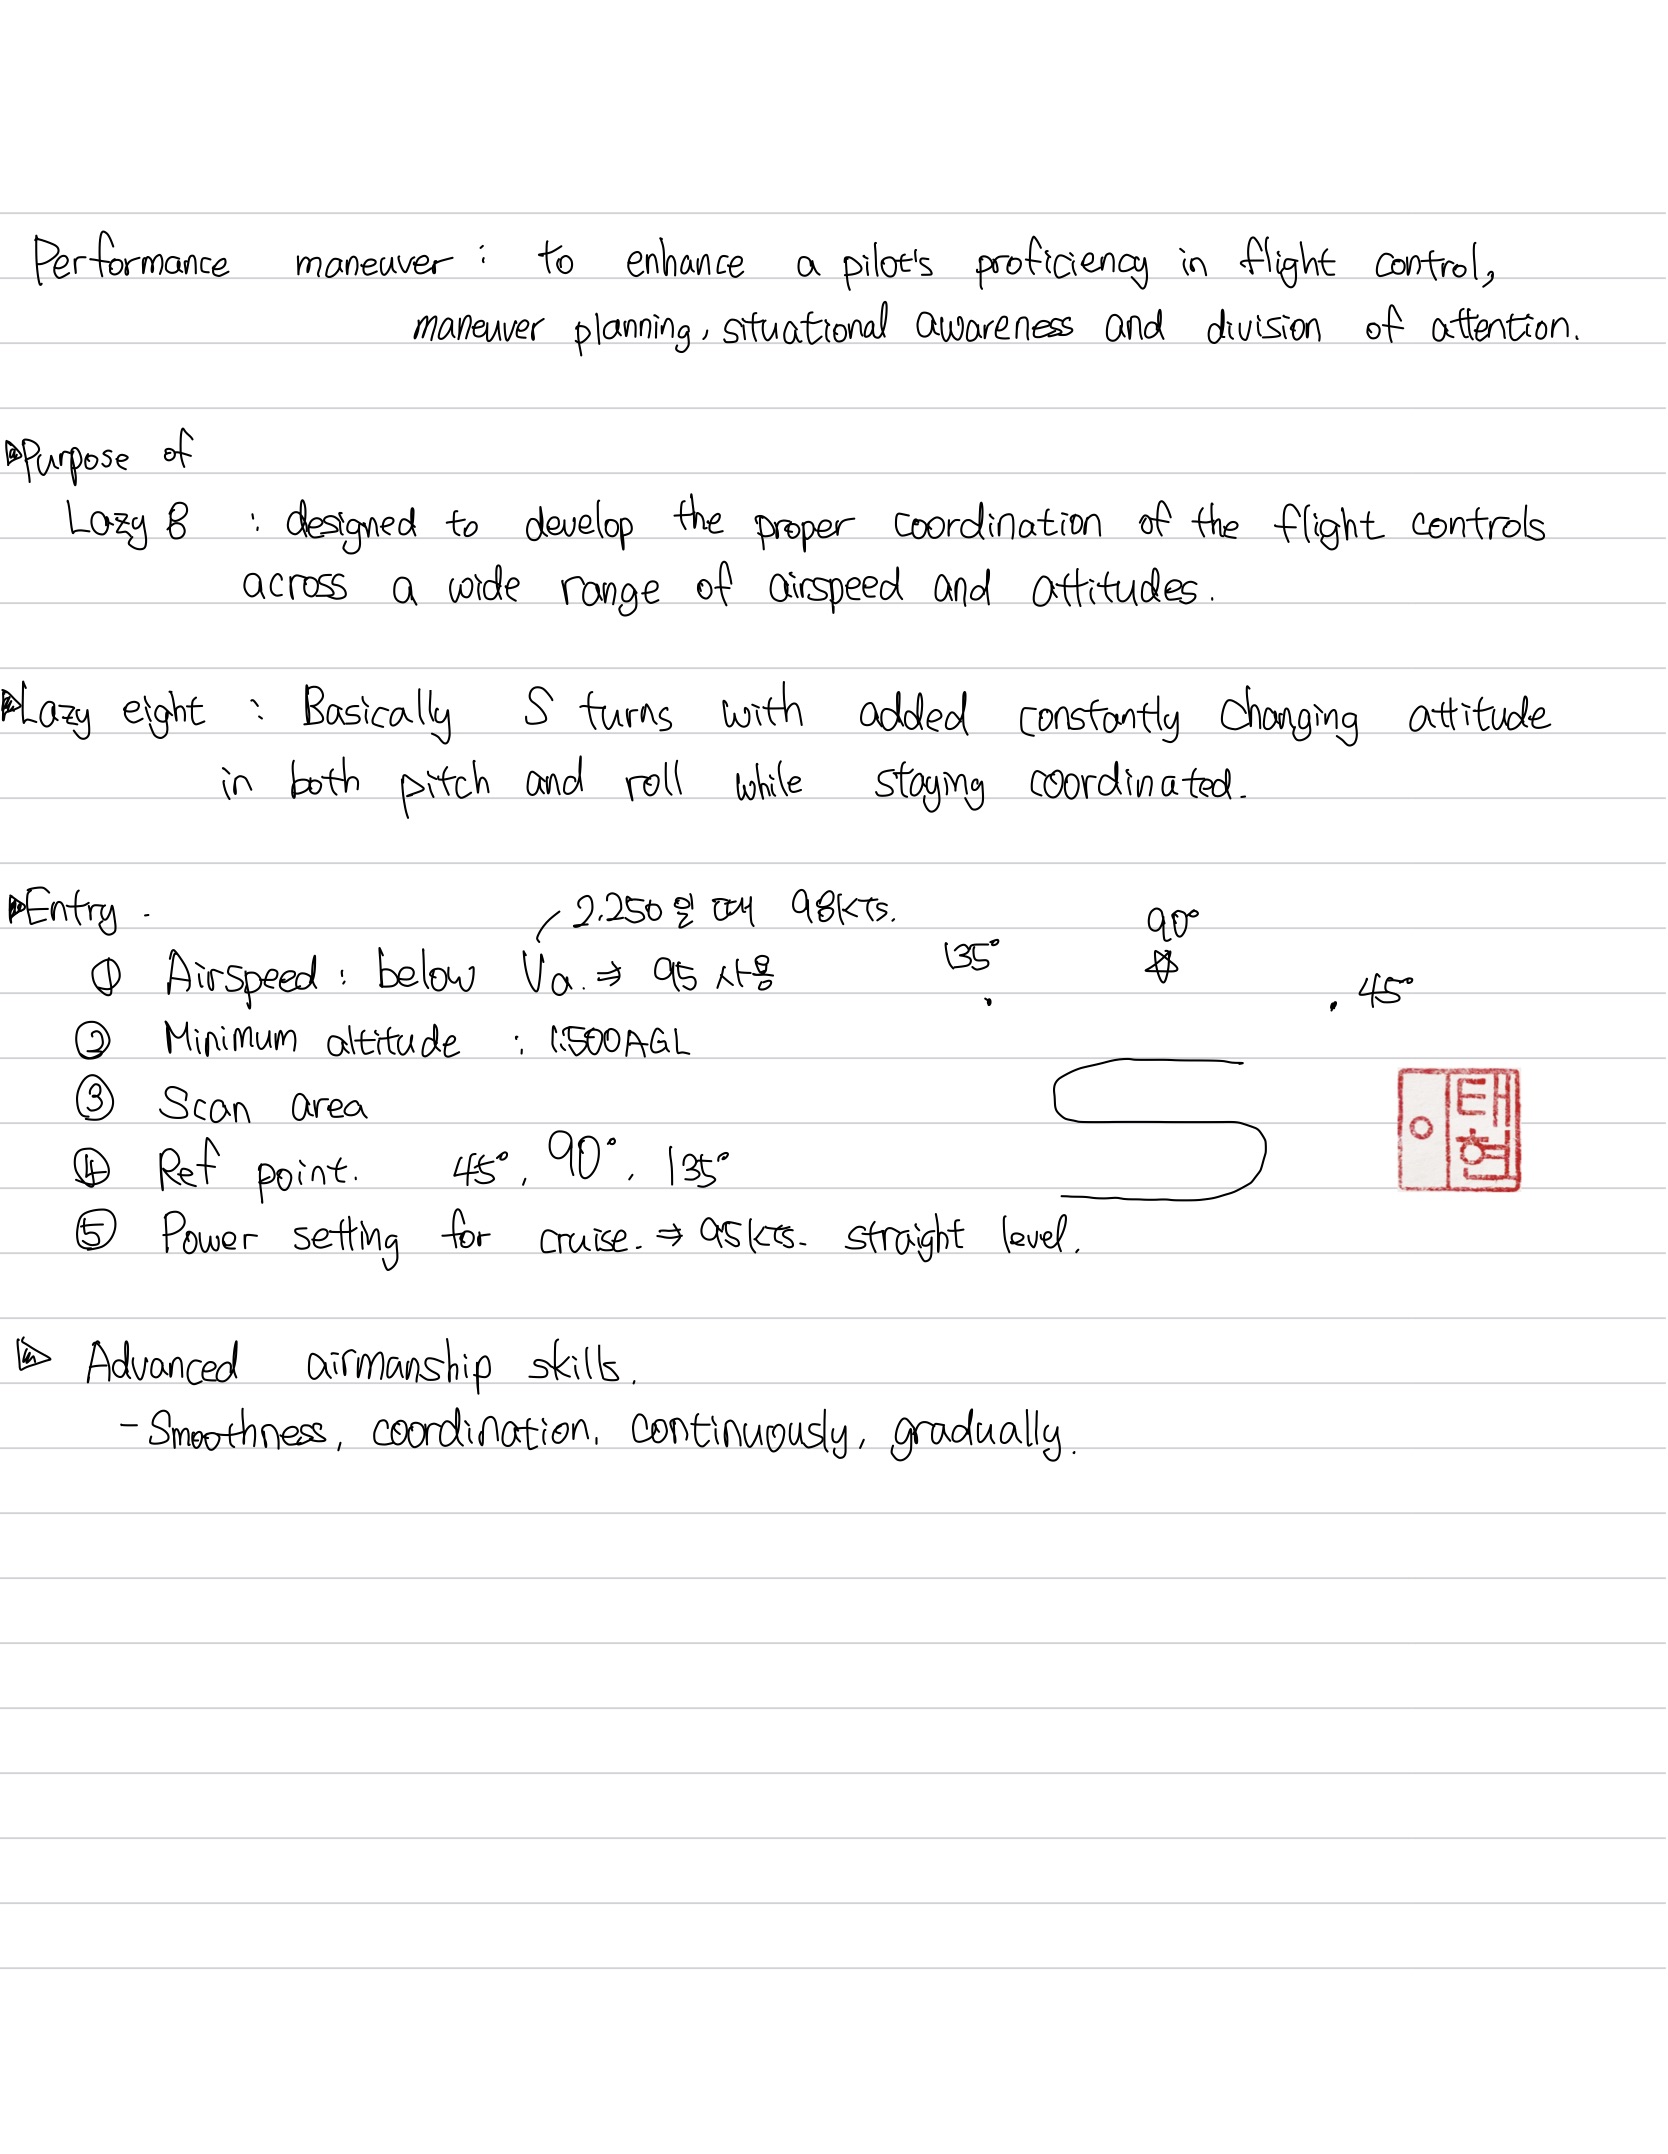 Performance maneuver : to enhance a pilot's proficiency in flight control,
maneuver planning, situational awareness and division of attention.
Purpose of
Lazy 8 : designed to develop the proper coordination of the flight controls
across a wide range of airspeed and attitudes.
Lazy eight : Basically S turns with added constantly changing attitude
in both pitch and roll while staying coordinated.
Entry.
2.250일 때 98kts.
① Airspeed : below Va. ⇒ 95 사용
② Minimum altitude : 1.500AGL
③ Scan area
④ Ref point. 45°, 90°, 135°
⑤ Power setting for cruise. ⇒ 95kts. straight level.
135°
90°
45°
이태헌
Advanced airmanship skills.
- Smoothness, coordination, continuously, gradually.